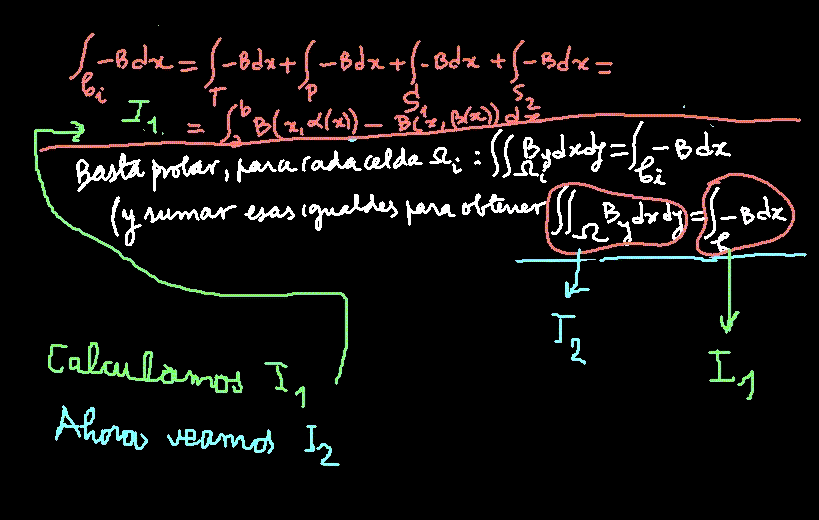 ∫_{C_i} -Bdx = ∫_T -Bdx + ∫_P -Bdx + ∫_{S_1} -Bdx + ∫_{S_2} -Bdx =
I_1 = ∫_a^b B(x, α(x)) - B(x, β(x)) dx
Basta probar, para cada celda Ω_i : ∬_{Ω_i} B_y dxdy = ∫_{C_i} -Bdx
(y sumar esas igualdes para obtener ∬_Ω B_y dxdy = ∫_C -Bdx
I_2
I_1
Calculamos I_1
Ahora veamos I_2